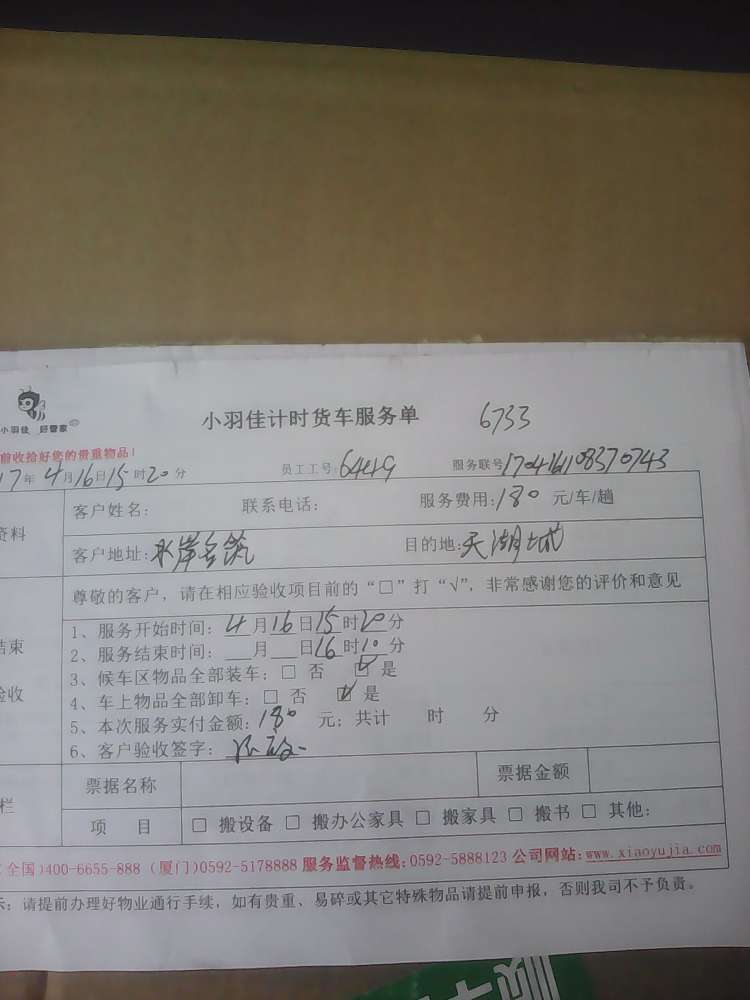 小羽佳计时货车服务单 6733
小羽佳 好管家
前收拾好您的贵重物品!
17年4月16日15时20分 员工工号:6449 服务联号170416108370743
资料
客户姓名: 联系电话: 服务费用:180 元/车/趟
客户地址:水岸名筑 目的地:天湖城
尊敬的客户,请在相应验收项目前的“□”打“√”,非常感谢您的评价和意见
结束
验收
1、服务开始时间:4月16日15时20分
2、服务结束时间:__月__日16时10分
3、候车区物品全部装车:□ 否 ☑ 是
4、车上物品全部卸车:□ 否 ☑ 是
5、本次服务实付金额:180 元;共计 时 分
6、客户验收签字:
栏
票据名称 票据金额
项 目 □ 搬设备 □ 搬办公家具 □ 搬家具 □ 搬书 □ 其他:
(全国)400-6655-888 (厦门)0592-5178888 服务监督热线:0592-5888123 公司网站:www.xiaoyujia.com
示:请提前办理好物业通行手续,如有贵重、易碎或其它特殊物品请提前申报,否则我司不予负责。